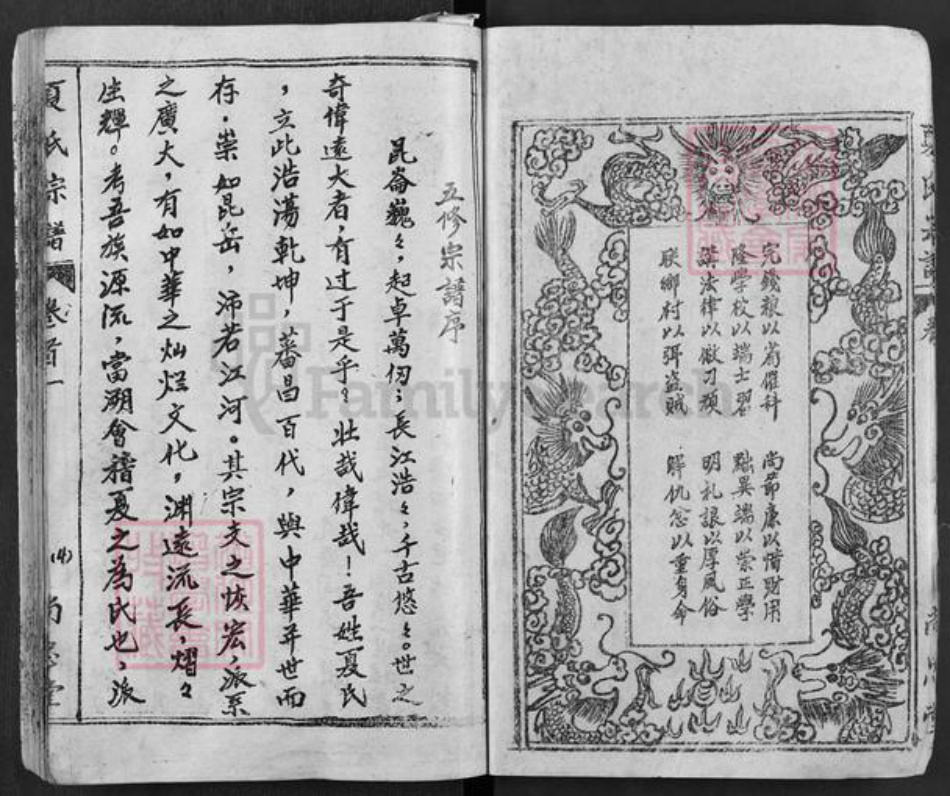 完錢粮以省催科
尚節廉以惜財用
隆學校以端士習
黜異端以崇正學
講法律以儆刁頑
明礼讓以厚風俗
联鄉村以弭盗賊
解仇忿以重身命
五修宗譜序
昆崙巍々，起卓萬仞；長江浩々，千古悠々。世之
奇偉遠大者，有过于是乎？壮哉偉哉！吾姓夏氏
，立此浩蕩乾坤，蕃昌百代，與中華平世而
存．崇如昆岳，沛若江河。其宗支之恢宏，派系
之廣大，有如中華之灿烂文化，渊遠流長．熠々
生輝。考吾族源流，當溯會稽夏之為氏也，派
夏氏宗譜
卷首一
(4)
尚忠堂
FamilySearch